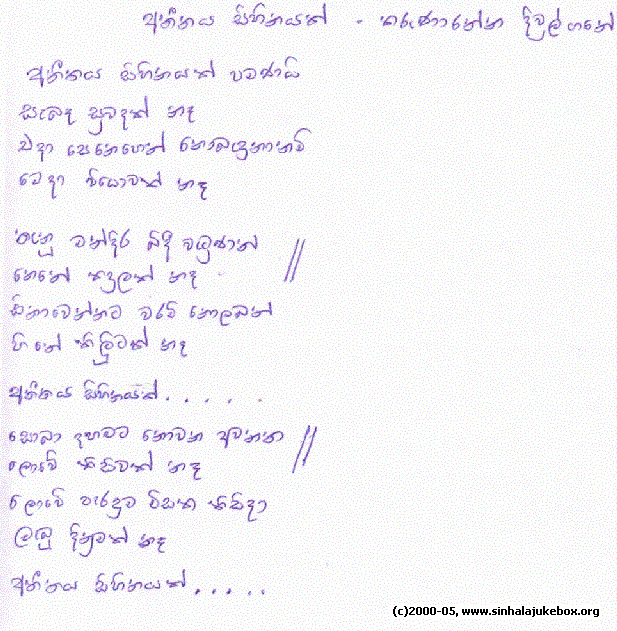 අතීතය සිහිනයක් - කරුණාරත්න දිවුල්ගනේ
අතීතය සිහිනයක් පමණයි
සැබෑ සුවඳක් නෑ
එදා පෙනහෙන් නොබැඳුනානම්
මෙදා වියොවක් නෑ
තනු මන්දිර බිදී වැටුණත් //
නෙතේ කඳුලක් නෑ
සිනාවෙන්නට වරම් නොලබන්
හිතේ කිලුටක් නෑ
අතීතය සිහිනයක්. . . . . .
සොබා දහමට නොවන අවනත //
ලොවේ කිසිවක් නෑ
ලොවේ වැරදුම විසක කිසිදා
ලැබූ දිනුමක් නෑ
අතීතය සිහිනයක්. . . . .
(c)2000-05, www.sinhalajukebox.org